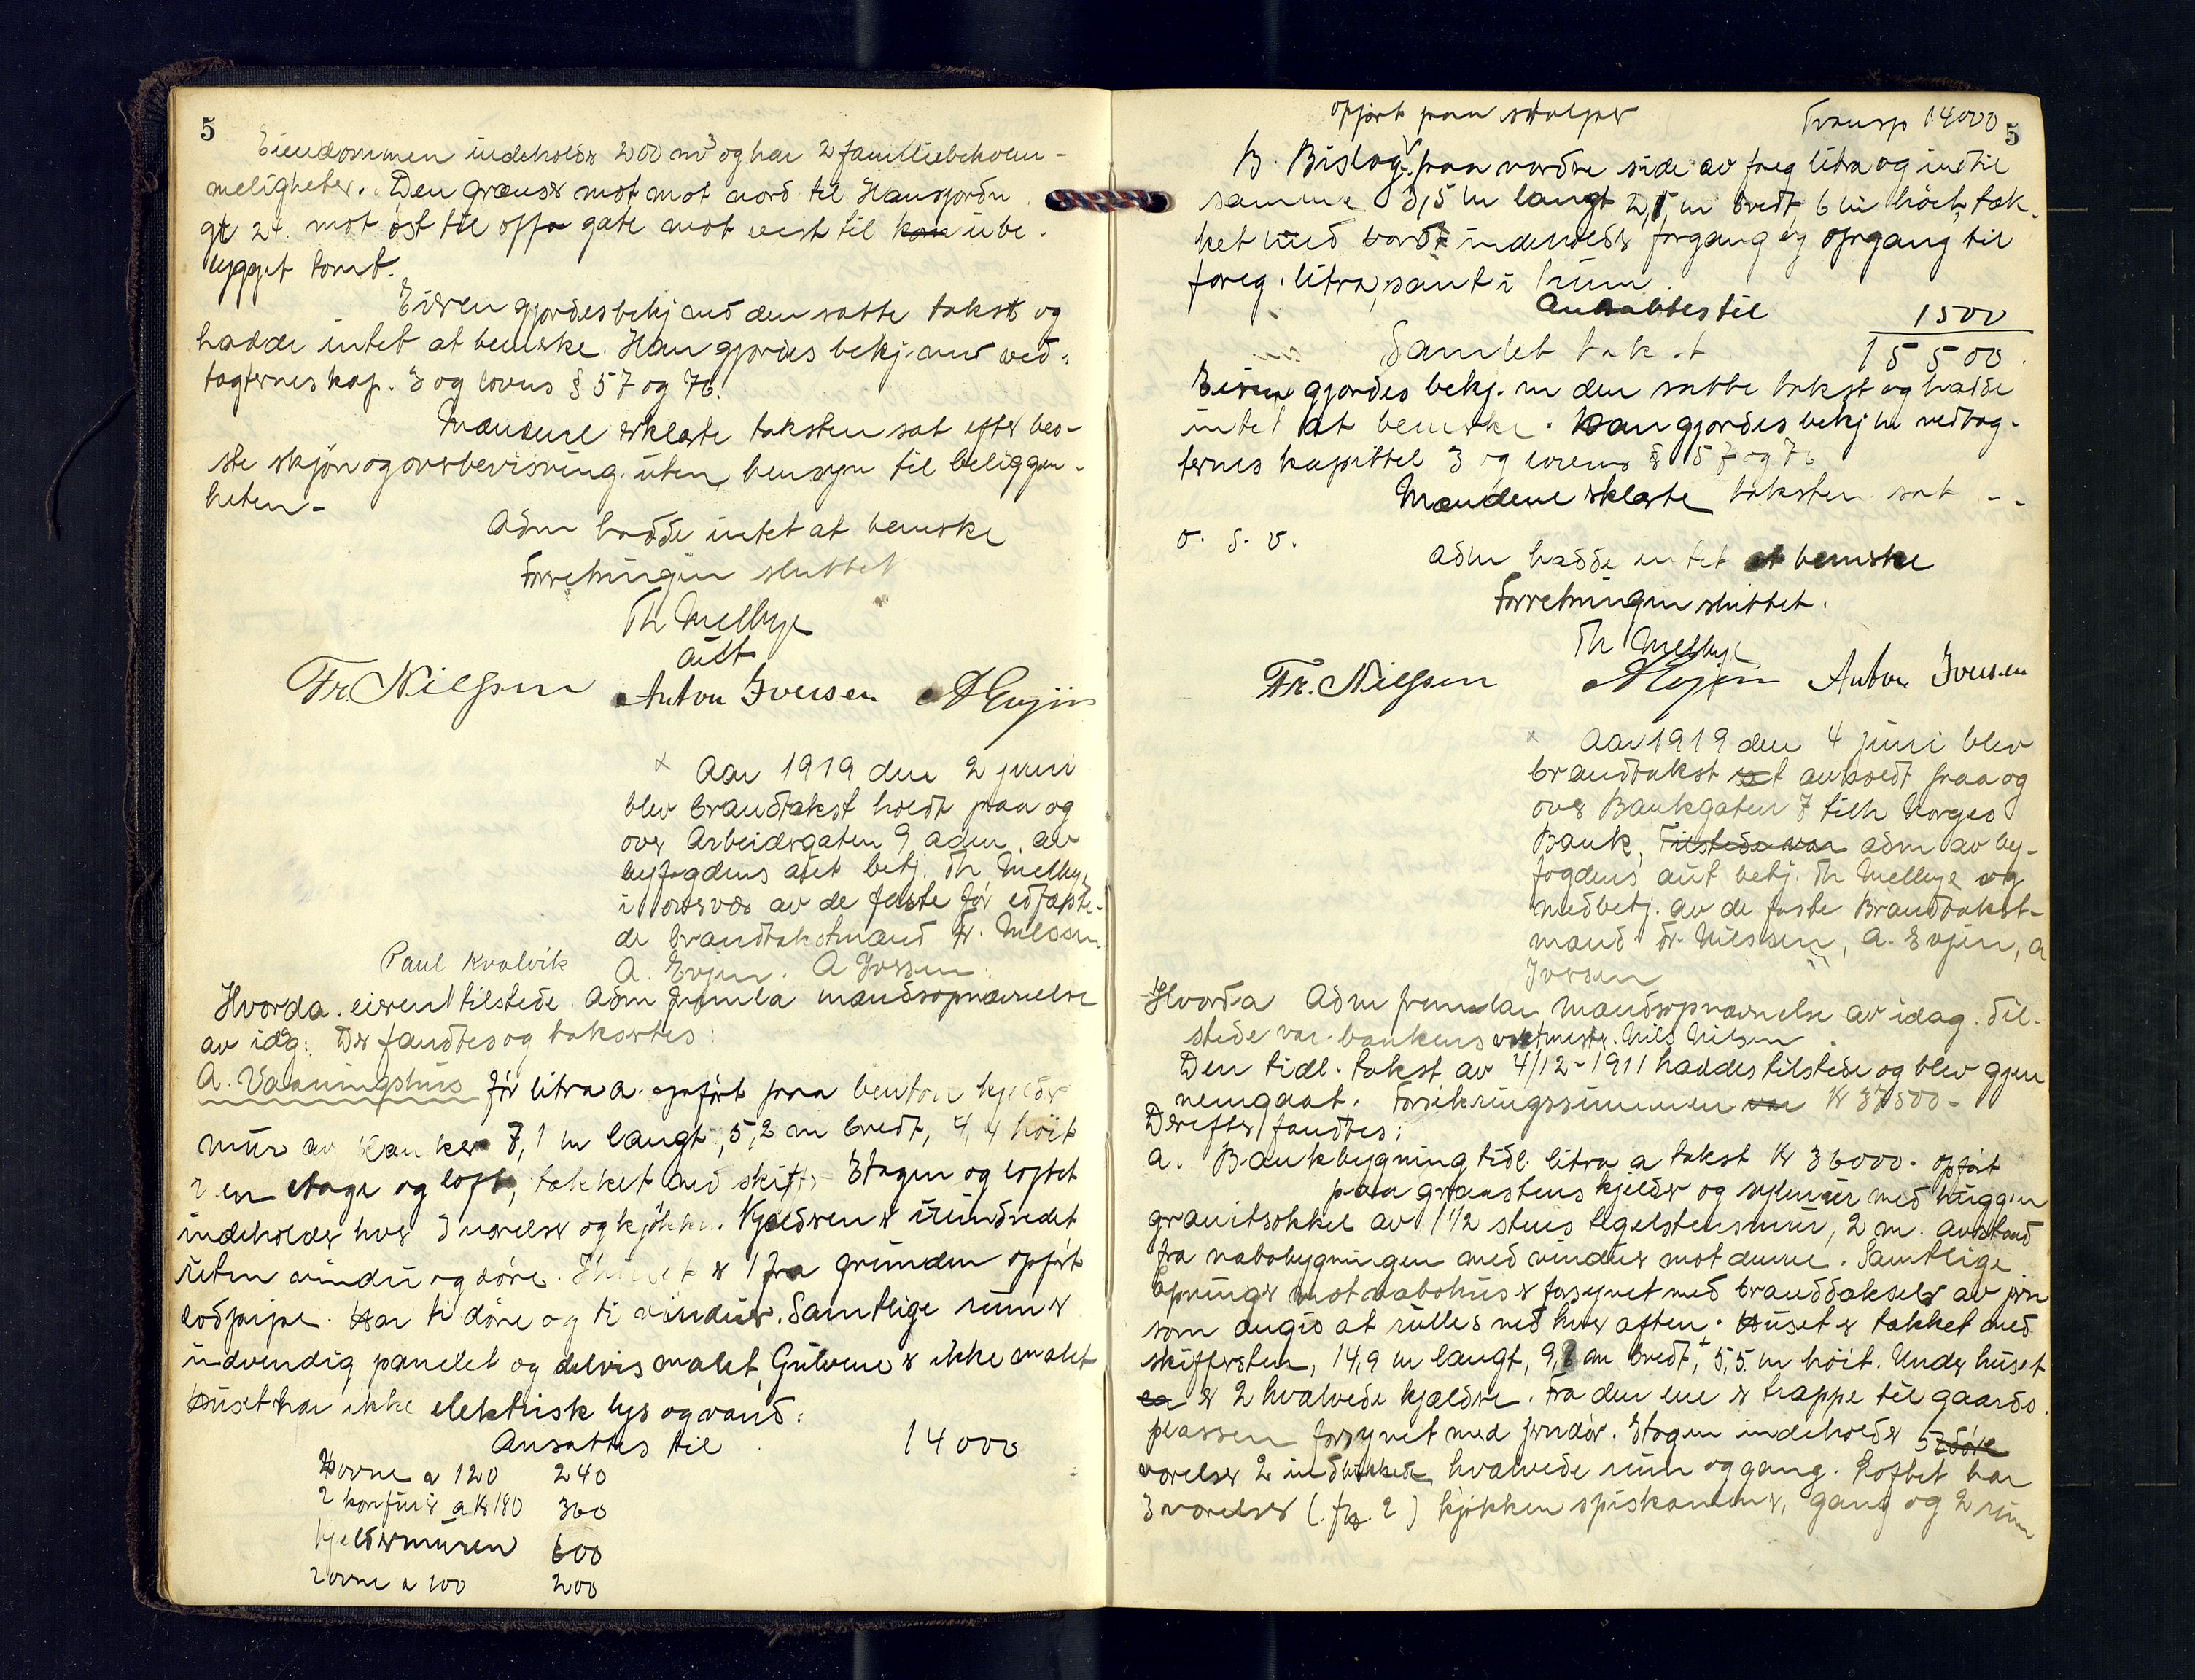 5
Eiendommen indeholder 200 m² og har 2 familiebekvem-
meligheter. Den grænser mot mot nord til Hansjordn
gt 24 mot øst til offn gate mot vest til ube-
bygget tomt.
Eieren gjordes bekj med den satte takst og
hadde intet at bemerke. Han gjordes bekj. med ved-
tægternes kap. 3 og lovens § 57 og 76.
Mændene erklærte taksten sat efter bed-
ste skjøn og overbevisning uten hensyn til beliggen-
heten-
Adm hadde intet at bemerke
Forretningen sluttet
Th Mellbye
aut
Fr. Nielssen Anton Iversen A Evjen
x Aar 1919 den 2 juni
blev brandtakst holdt paa og
over Arbeidergaten 9 adm. av
byfogdens aut betj. Th Mellbye
i overvær av de faste før edfæste-
de brandtakstmænd Fr. Nilssen
A. Evjen. A Iversen.
Paul Kvalvik
Hvorda. eieren tilstede. Adm fremla mandsopnævnelse
av idag: Der fandtes og takseredes:
A. Vaaningshus før litra a. opført paa beuton kjelder
mur av planker 7,1 m langt, 5,2 m bredt, 4,4 høit
i en etage og loft, tækket med skifer Etagen og loftet
indeholder hver 3 værelser og kjøkken. Kjelderen er uindredet
uten vindu og døre. Huset er 1 fra grunden opført
lodpipe. Har ti døre og ti vinduer. Samtlige rum er
indvendig panelet og delvis malet, Gulvene er ikke malet
Huset har ikke elektrisk lys og vand.
Ansattes til 14000
2 ovne a 120 240
2 komfurer a kr 180 360
kjeldermuren 600
2 ovne a 100 200
opført paa stolper Transp 14000 5
B. Bislag paa nordre side av foreg litra og indtil
samme 3,5 m langt 2,5 m bredt, 6 m høit, tæk-
ket med bord indeholder forgang og opgang til
foreg. litra, samt i rum.
Ansattes til 1500
Samlet takst 15500
Eieren gjordes bekj. m den satte takst og hadde
intet at bemerke. Han gjordes bekj m vedtæg-
ternes kapittel 3 og lovens § 57 og 76
Mændene erklærte taksten sat - -
o. s. v.
Adm hadde intet at bemerke
Forretningen sluttet.
Th Mellbye
Fr. Nielssen A Evjen Anton Iversen
x Aar 1919 den 4 juni blev
brandtakst avholdt paa og
over Bankgaten 7 tilh Norges
Bank, Tilstede var adm av by-
fogdens aut betj. Th Mellbye og
medbetj. av de faste Brandtakst-
mænd Fr. Nilssen, A. Evjen, A
Iversen
Hvorda Adm fremla mandsopnævnelse av idag. Til-
stede var bankens vaktmester Nils Nilsen
Den tidl. takst av 4/12-1911 haddes tilstede og blev gjen
nemgaat. Forsikringssummen var kr 37500-
Derefter fandtes:
a. Bankbygning tidl. litra a takst kr 36000. opført
paa graastens kjelder og mur med huggen
granitsokkel av 1 1/2 stens teglstensmur, 2 m. avstand
fra nabobygningen med vinduer mot denne. Samtlige
aapninger mot nabohus er forsynet med branddæksel av jern
som angis at rulles ned hver aften. Huset er tækket med
skiffersten, 14,9 m langt, 9,8 m bredt, 5,5 m høit. Under huset
er 2 hvælvede kjældre. Fra den ene er trappe til gaards-
plassen forsynet med jerndør. Etagen indeholder 5 døre
værelser 2 hvælvede rum og gang. Loftet har
3 værelser (før 2) kjøkken spiskammer, gang og 2 rum